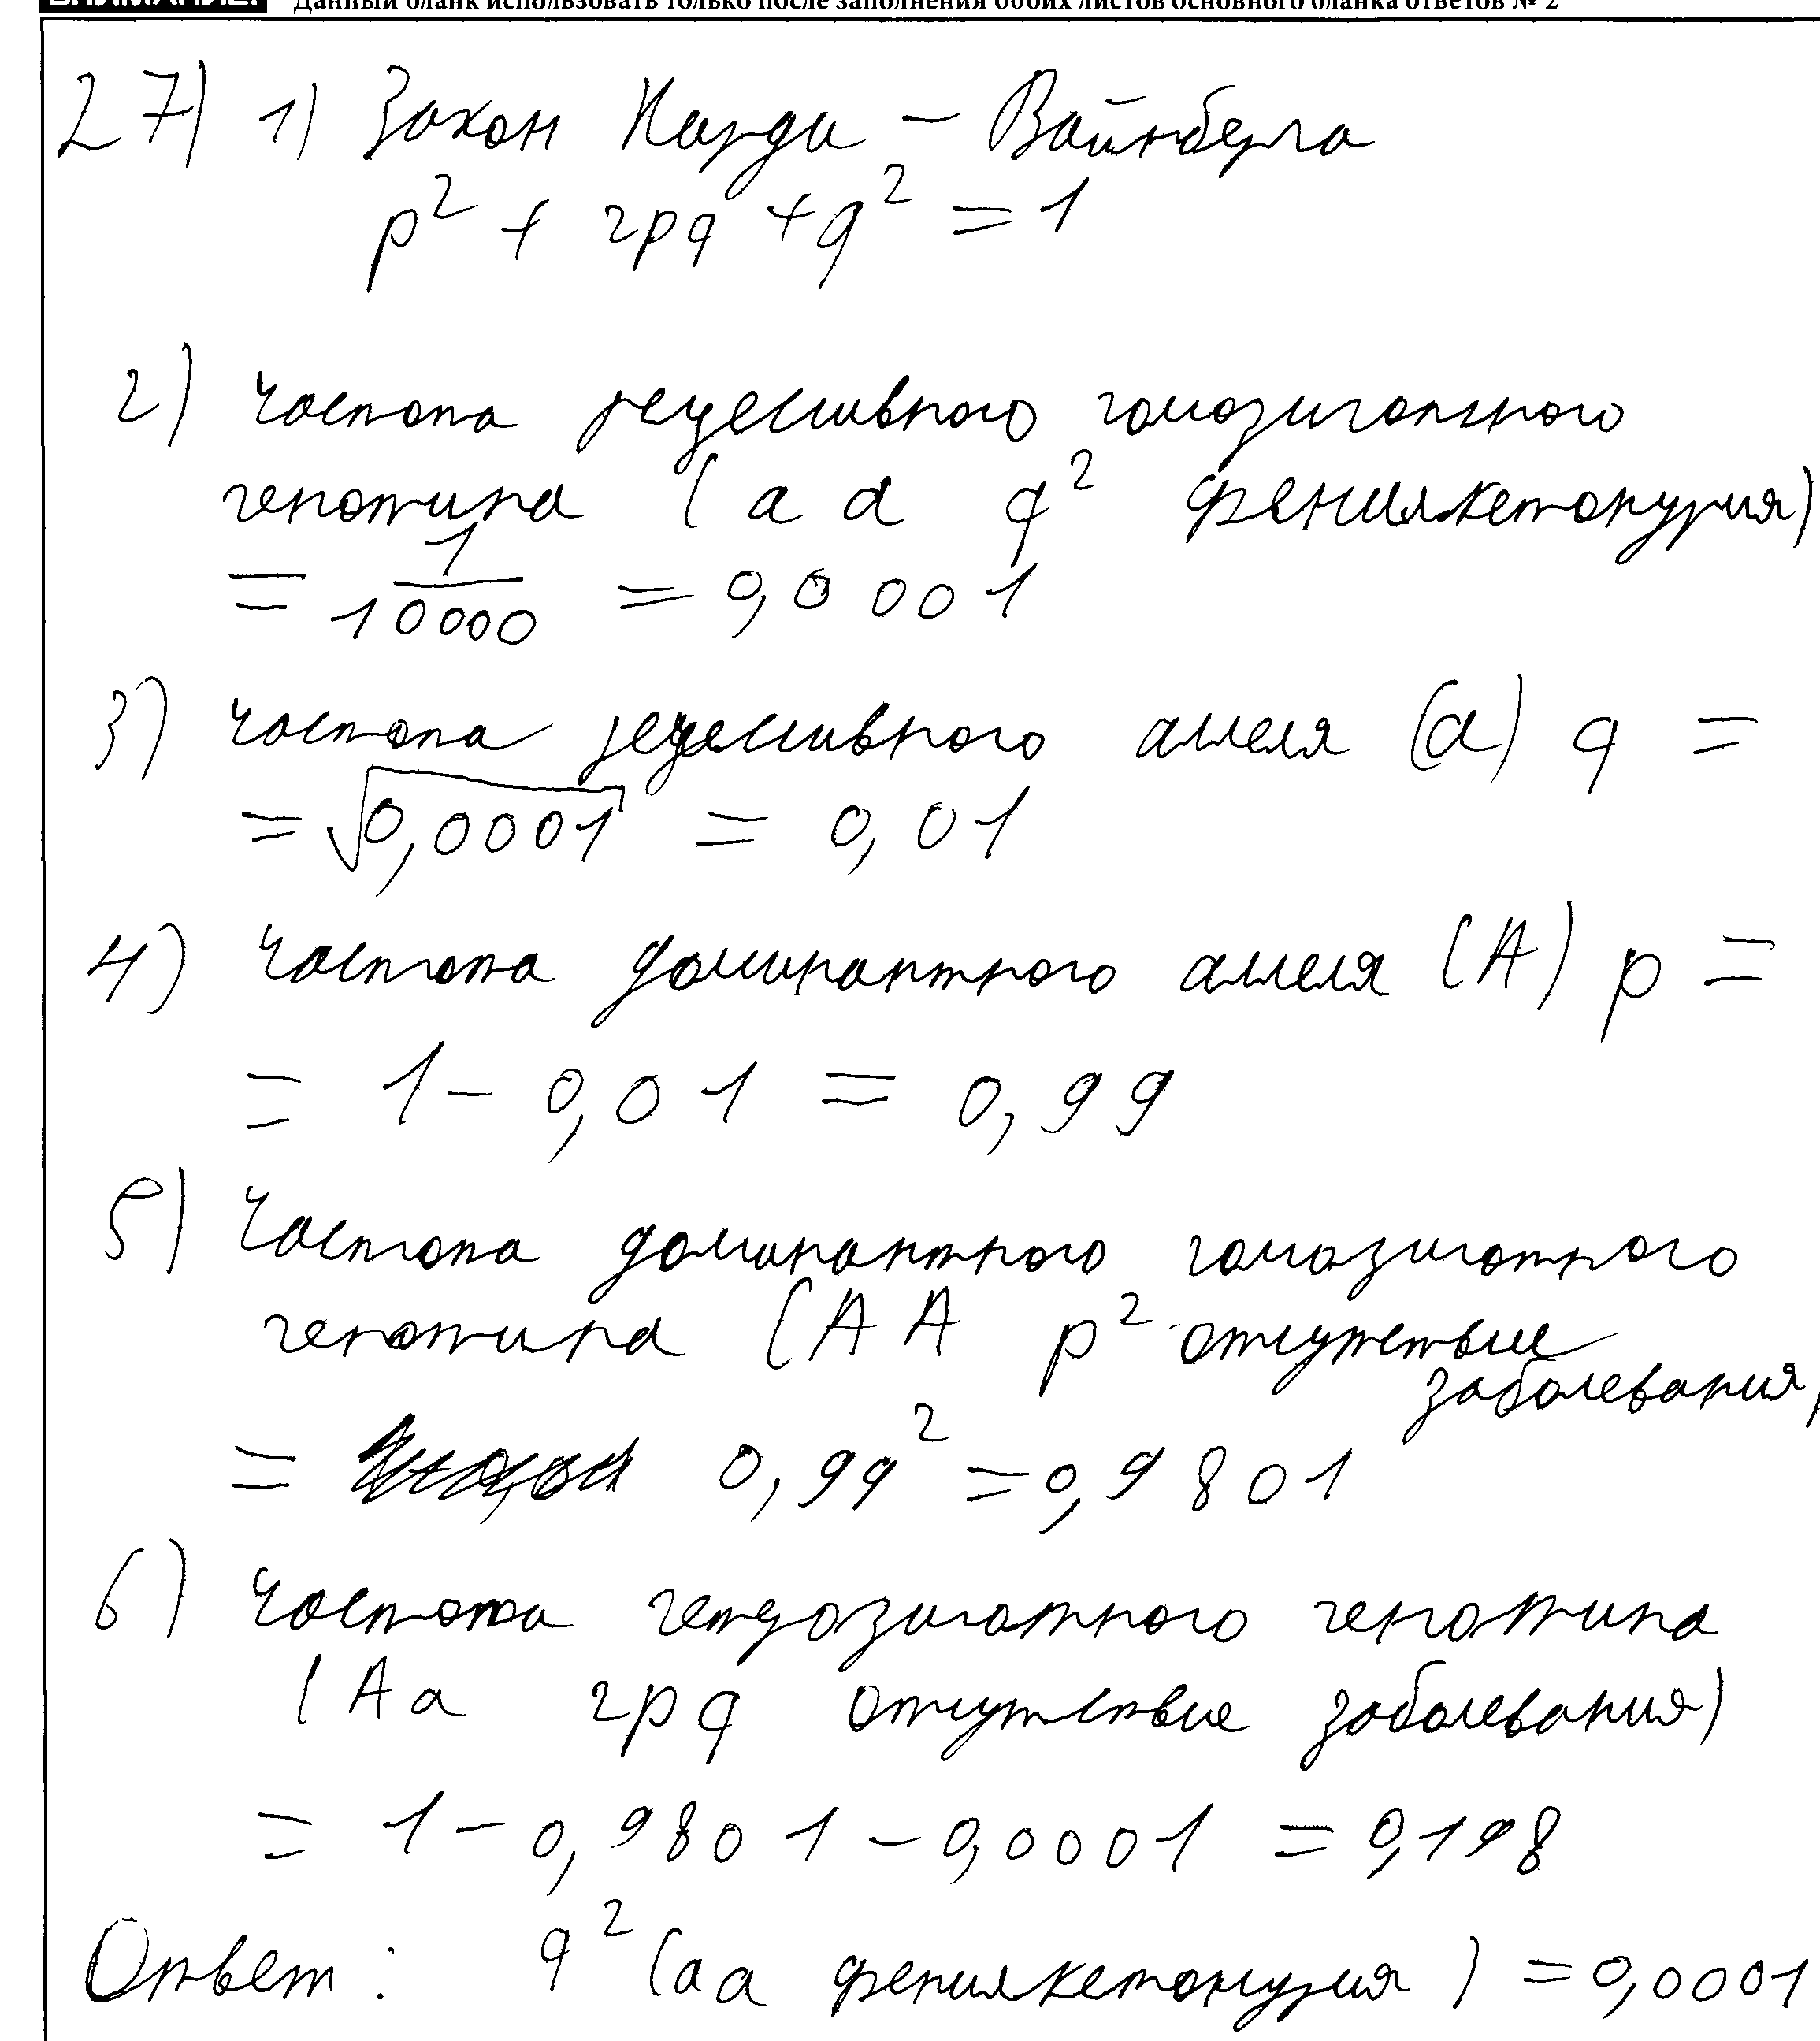 Данный бланк использовать только после заполнения обоих листов основного бланка ответов № 2
27) 1) Закон Харди – Вайнберга
p² + 2pq + q² = 1
2) частота рецессивного гомозиготного
генотипа (aa q² фенилкетонурия)
= 1/10000 = 0,0001
3) частота рецессивного аллеля (a) q =
= √0,0001 = 0,01
4) частота доминантного аллеля (A) p =
= 1 – 0,01 = 0,99
5) частота доминантного гомозиготного
генотипа (AA p² отсутствие
заболевания)
= 0,99² = 0,9801
6) частота гетерозиготного генотипа
(Aa 2pq отсутствие заболевания)
= 1 – 0,9801 – 0,0001 = 0,198
Ответ: q² (aa фенилкетонурия) = 0,0001